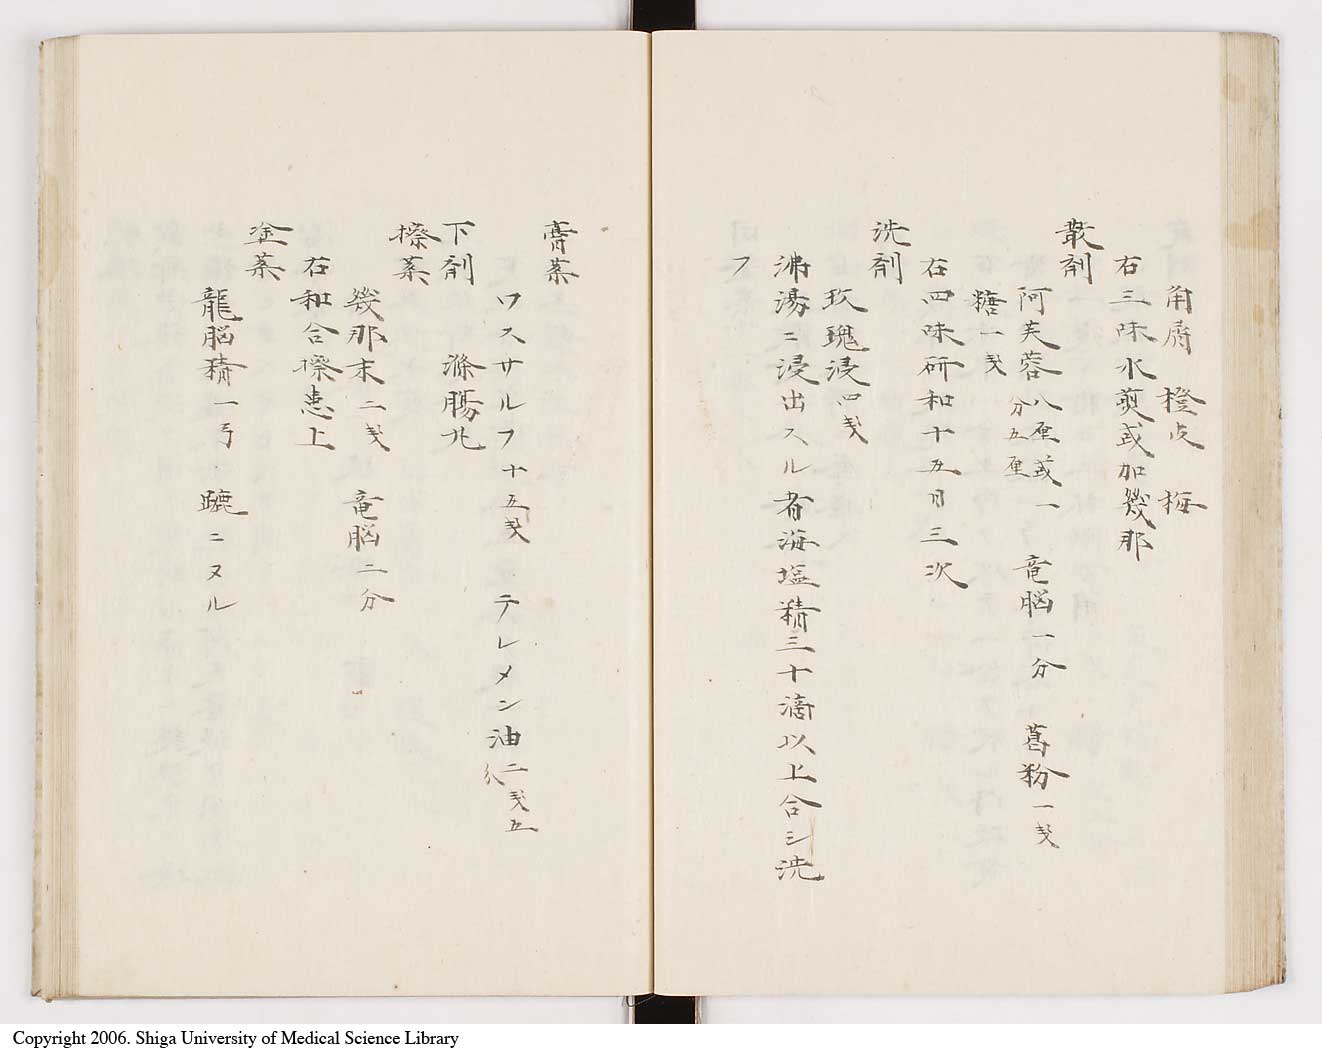 角屑 橙皮 梅
右三味水煎或加幾那
散剤
阿芙蓉八厘或一分五厘 竜脳一分 葛粉一戔
糖一戔
右四味研和十五日三次
洗剤
玫瑰浸四戔
沸湯ニ浸出スル者海塩精三十滴以上合シ洗
フ
膏薬
ワスサルフ十五戔 テレメン油二戔五
分
下剤 滌腸九
擦薬
幾那末二戔 竜脳二分
右和合擦患上
塗薬
龍脳精一弓 ニヌル
Copyright 2006. Shiga University of Medical Science Library